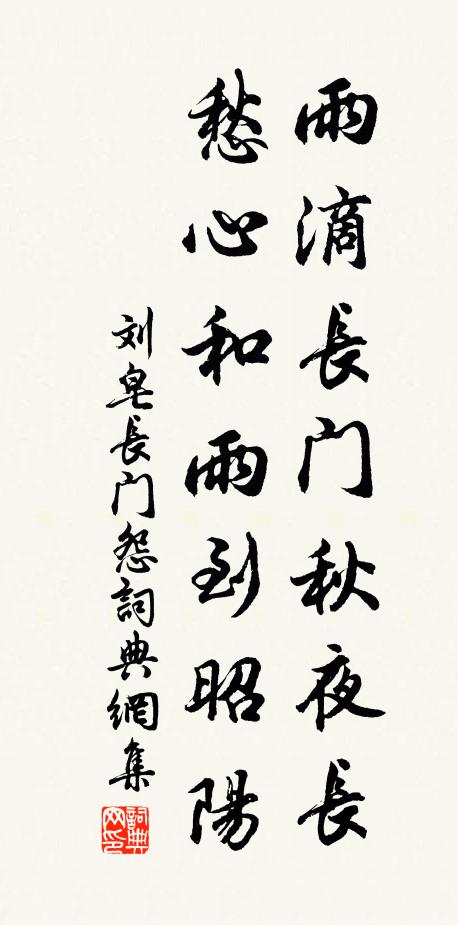 雨滴長门秋夜長
愁心和雨到昭陽
刘皂長门怨詞典網集
詞典网印